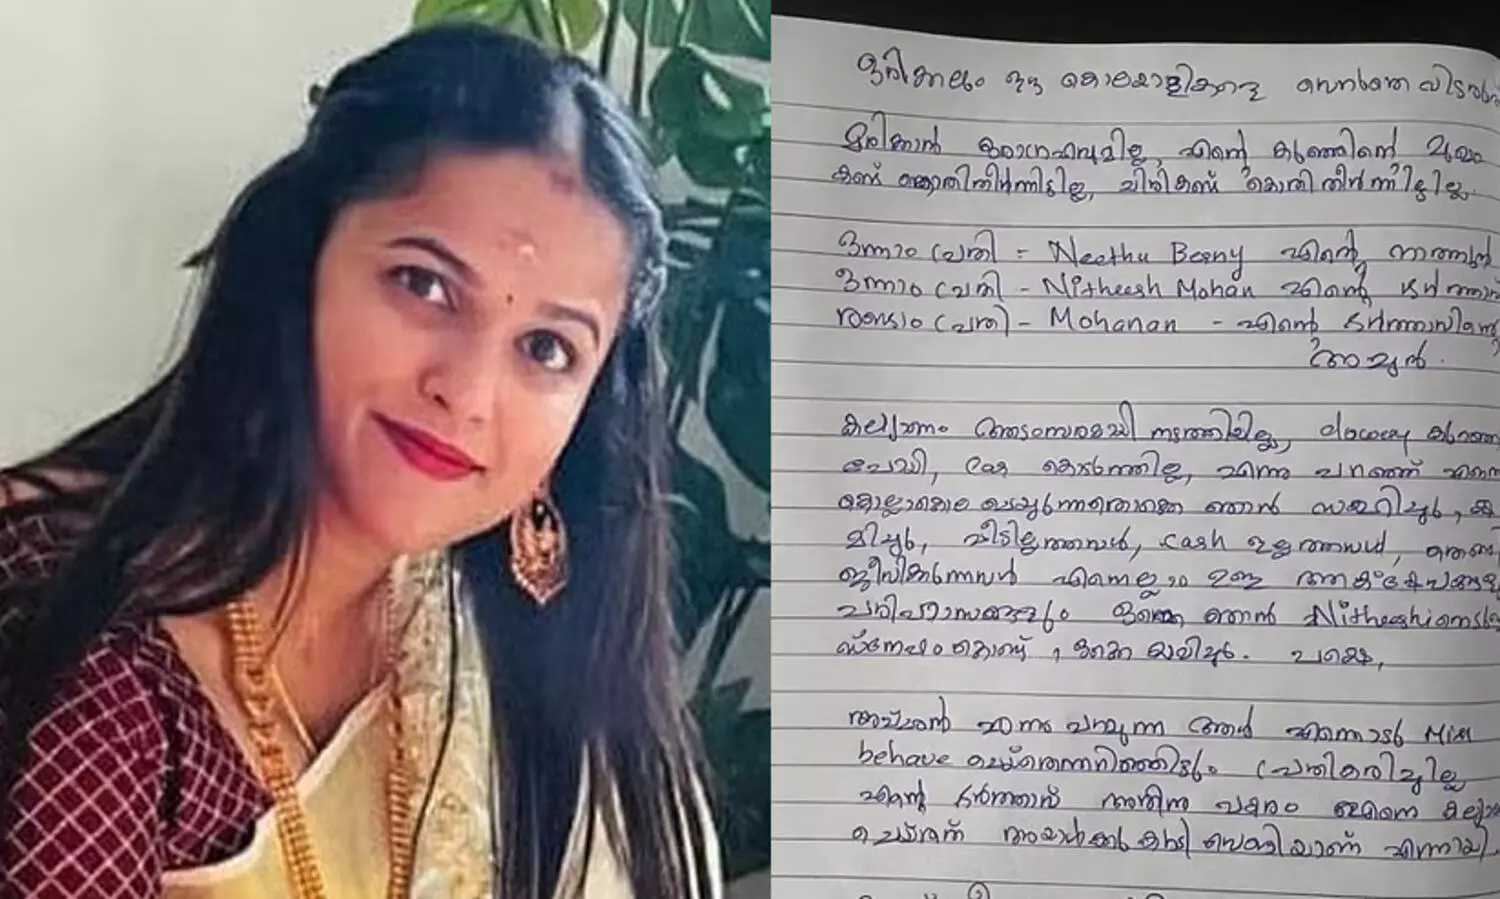 ഒരിക്കലും ഈ കൊലയാളികളെ വെറുതെ വിടരുത്
മരിക്കാൻ ആഗ്രഹമില്ല, എന്റെ കുഞ്ഞിന്റെ മുഖം
കണ്ട് കൊതിതീർന്നിട്ടില്ല, ചിരികണ്ട് കൊതിതീർന്നിട്ടില്ല
ഒന്നാം പ്രതി - Neethu Beeny എന്റെ നാത്തൂൻ
ഒന്നാം പ്രതി - Nitheesh Mohan എന്റെ ഭർത്താവ്
രണ്ടാം പ്രതി - Mohanan - എന്റെ ഭർത്താവിന്റെ
അച്ഛൻ.
കല്യാണം ആഡംബരമായി നടത്തിയില്ല, dowery കുറഞ്ഞു
പോയി, Car കൊടുത്തില്ല, എന്നു പറഞ്ഞ് എന്നെ
കൊല്ലാകൊല ചെയ്യുന്നതൊക്കെ ഞാൻ സഹിച്ചു,
വീടില്ലാത്തവൾ, cash ഇല്ലാത്തവൾ,
ജീവിക്കുന്നവൾ എന്നെല്ലാം ഉള്ള
പരിഹാസങ്ങളും ഒക്കെ ഞാൻ Nitheeshinോടുള്ള
സ്നേഹം കൊണ്ട്, ഒക്കെ സഹിച്ചു. പക്ഷെ,
അച്ഛൻ എന്നു പറയുന്ന ആൾ എന്നോട് Miss
behave ചെയ്തെന്നറിഞ്ഞിട്ടും പ്രതികരിച്ചില്ല
എന്റെ ഭർത്താവ് അതിനു പകരം എന്നെ കല്യാണം
ചെയ്തത് അയാൾക്കു കൂടി വേണ്ടിയാണ് എന്നായി